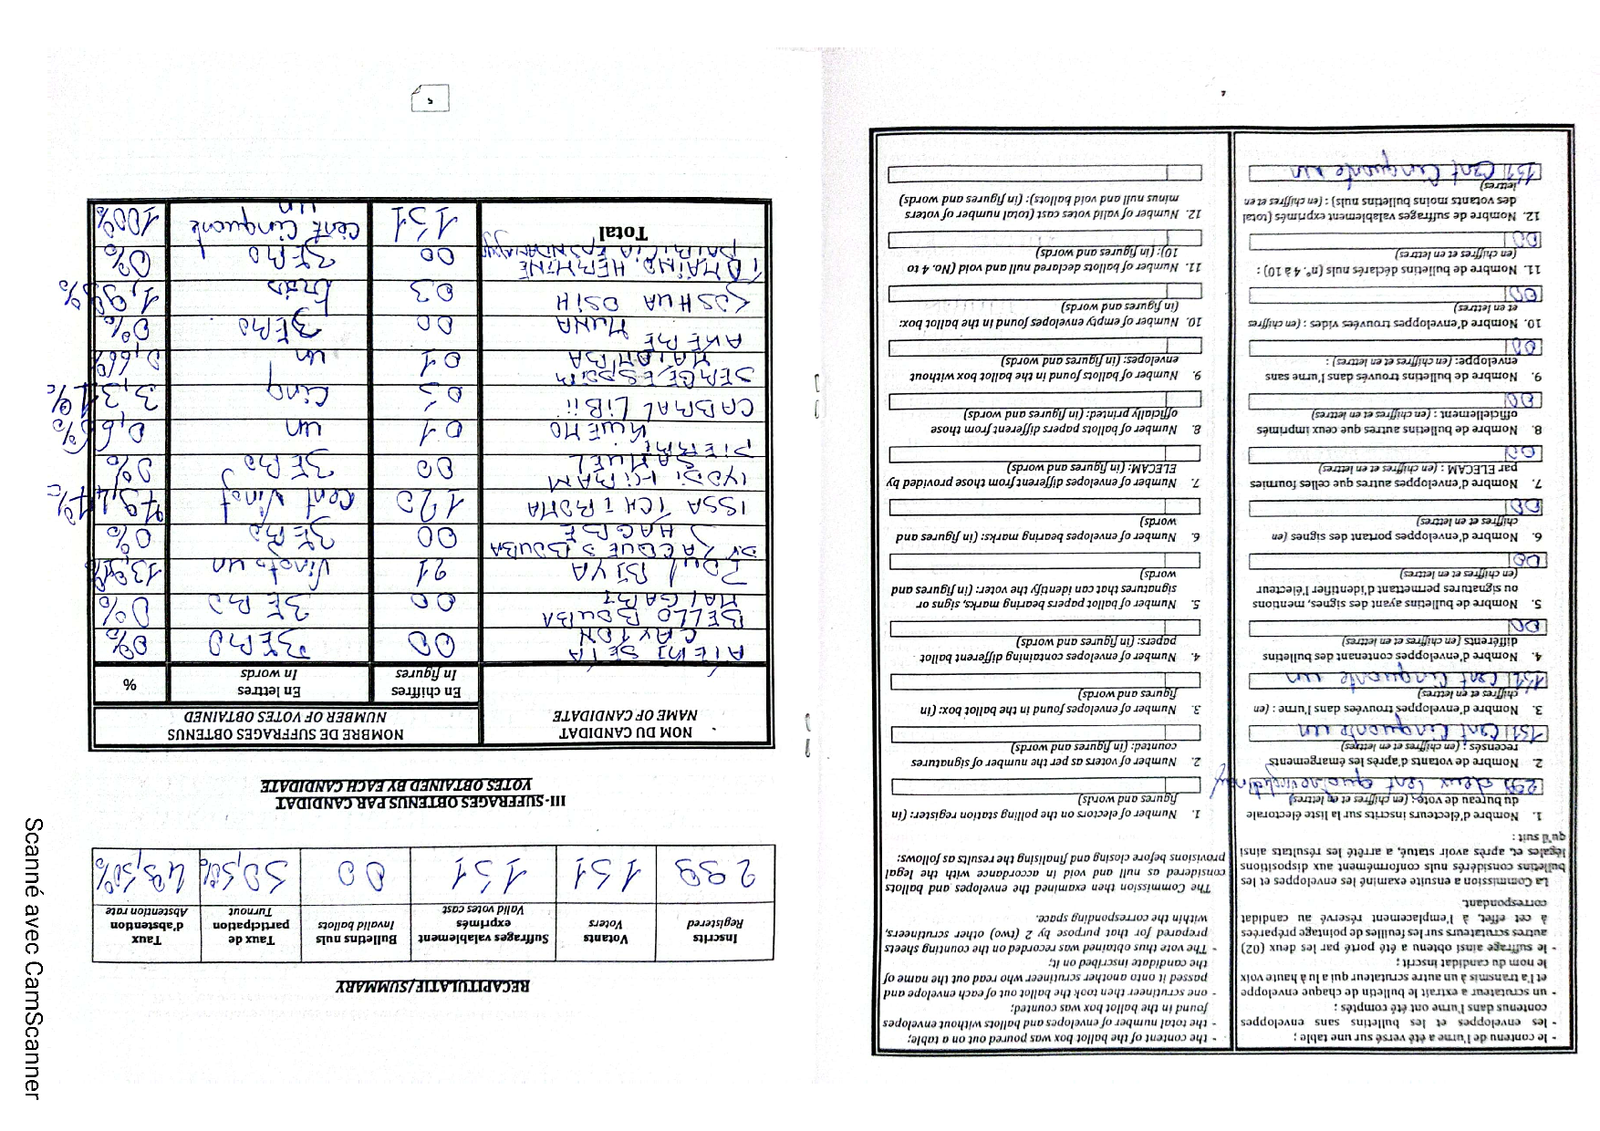 - le contenu de l'urne a été versé sur une table ;
- les enveloppes et les bulletins sans enveloppes
contenus dans l'urne ont été comptés ;
- un scrutateur a extrait le bulletin de chaque enveloppe
et l'a transmis à un autre scrutateur qui a lu à haute voix
le nom du candidat inscrit ;
- le suffrage ainsi obtenu a été porté par les deux (02)
autres scrutateurs sur les feuilles de pointage préparées
à cet effet, à l'emplacement réservé au candidat
correspondant.
La Commission a ensuite examiné les enveloppes et les
bulletins considérés nuls conformément aux dispositions
légales et, après avoir statué, a arrêté les résultats ainsi
qu'il suit :
1. Nombre d'électeurs inscrits sur la liste électorale
du bureau de vote: (en chiffres et en lettres)
299 deux cent quatre vingt dix neuf
2. Nombre de votants d'après les émargements
recensés : (en chiffres et en lettres)
151 Cent Cinquante un
3. Nombre d'enveloppes trouvées dans l'urne : (en
chiffres et en lettres)
151 Cent Cinquante un
4. Nombre d'enveloppes contenant des bulletins
différents (en chiffres et en lettres)
00
5. Nombre de bulletins ayant des signes, mentions
ou signatures permettant d'identifier l'électeur
(en chiffres et en lettres)
00
6. Nombre d'enveloppes portant des signes (en
chiffres et en lettres)
00
7. Nombre d'enveloppes autres que celles fournies
par ELECAM : (en chiffres et en lettres)
00
8. Nombre de bulletins autres que ceux imprimés
officiellement : (en chiffres et en lettres)
00
9. Nombre de bulletins trouvés dans l'urne sans
enveloppe: (en chiffres et en lettres) :
00
10. Nombre d'enveloppes trouvées vides : (en chiffres
et en lettres)
00
11. Nombre de bulletins déclarés nuls (n°. 4 à 10) :
(en chiffres et en lettres)
00
12. Nombre de suffrages valablement exprimés (total
des votants moins bulletins nuls) : (en chiffres et en
lettres)
151 Cent Cinquante un
- the content of the ballot box was poured out on a table;
- the total number of envelopes and ballots without envelopes
found in the ballot box was counted;
- one scrutineer then took the ballot out of each envelope and
passed it onto another scrutineer who read out the name of
the candidate inscribed on it;
- The vote thus obtained was recorded on the counting sheets
prepared for that purpose by 2 (two) other scrutineers,
within the corresponding space.
The Commission then examined the envelopes and ballots
considered as null and void in accordance with the legal
provisions before closing and finalising the results as follows:
1. Number of electors on the polling station register: (in
figures and words)
2. Number of voters as per the number of signatures
counted: (in figures and words)
3. Number of envelopes found in the ballot box: (in
figures and words)
4. Number of envelopes containing different ballot
papers: (in figures and words)
5. Number of ballot papers bearing marks, signs or
signatures that can identify the voter: (in figures and
words)
6. Number of envelopes bearing marks: (in figures and
words)
7. Number of envelopes different from those provided by
ELECAM: (in figures and words)
8. Number of ballots papers different from those
officially printed: (in figures and words)
9. Number of ballots found in the ballot box without
envelopes: (in figures and words)
10. Number of empty envelopes found in the ballot box:
(in figures and words)
11. Number of ballots declared null and void (No. 4 to
10): (in figures and words)
12. Number of valid votes cast (total number of voters
minus null and void ballots): (in figures and words)
RECAPITULATIF/SUMMARY
Inscrits Registered | Votants Voters | Suffrages valablement exprimés Valid votes cast | Bulletins nuls Invalid ballots | Taux de participation Turnout | Taux d'abstention Abstention rate
299 151 151 00 50,50% 49,50%
III- SUFFRAGES OBTENUS PAR CANDIDAT
VOTES OBTAINED BY EACH CANDIDATE
NOM DU CANDIDAT
NAME OF CANDIDATE
NOMBRE DE SUFFRAGES OBTENUS
NUMBER OF VOTES OBTAINED
En chiffres In figures | En lettres In words | %
ATEKI SETA CAXTON 00 ZERO 0%
BELLO BOUBA MAIGARI 00 ZERO 0%
Paul BIYA 21 Vingt un
DR JACQUES BOUBA HAGBE 00 ZERO 0%
ISSA TCHIROMA 120 Cent Vingt
IYODI HIRAM SAMUEL 00 ZERO 0%
PIERRE KWEMO 01 un
CABRAL LIBII 05 Cinq 3,31%
SERGE ESPOIR MATOMBA 01 un 0,66%
AKERE MUNA 00 ZERO 0%
JOSHUA OSIH 03 trois
TOMAINO HERMINE PATRICIA 00 ZERO 0%
Total 151 Cent Cinquante un 100%
5
Scanné avec CamScanner